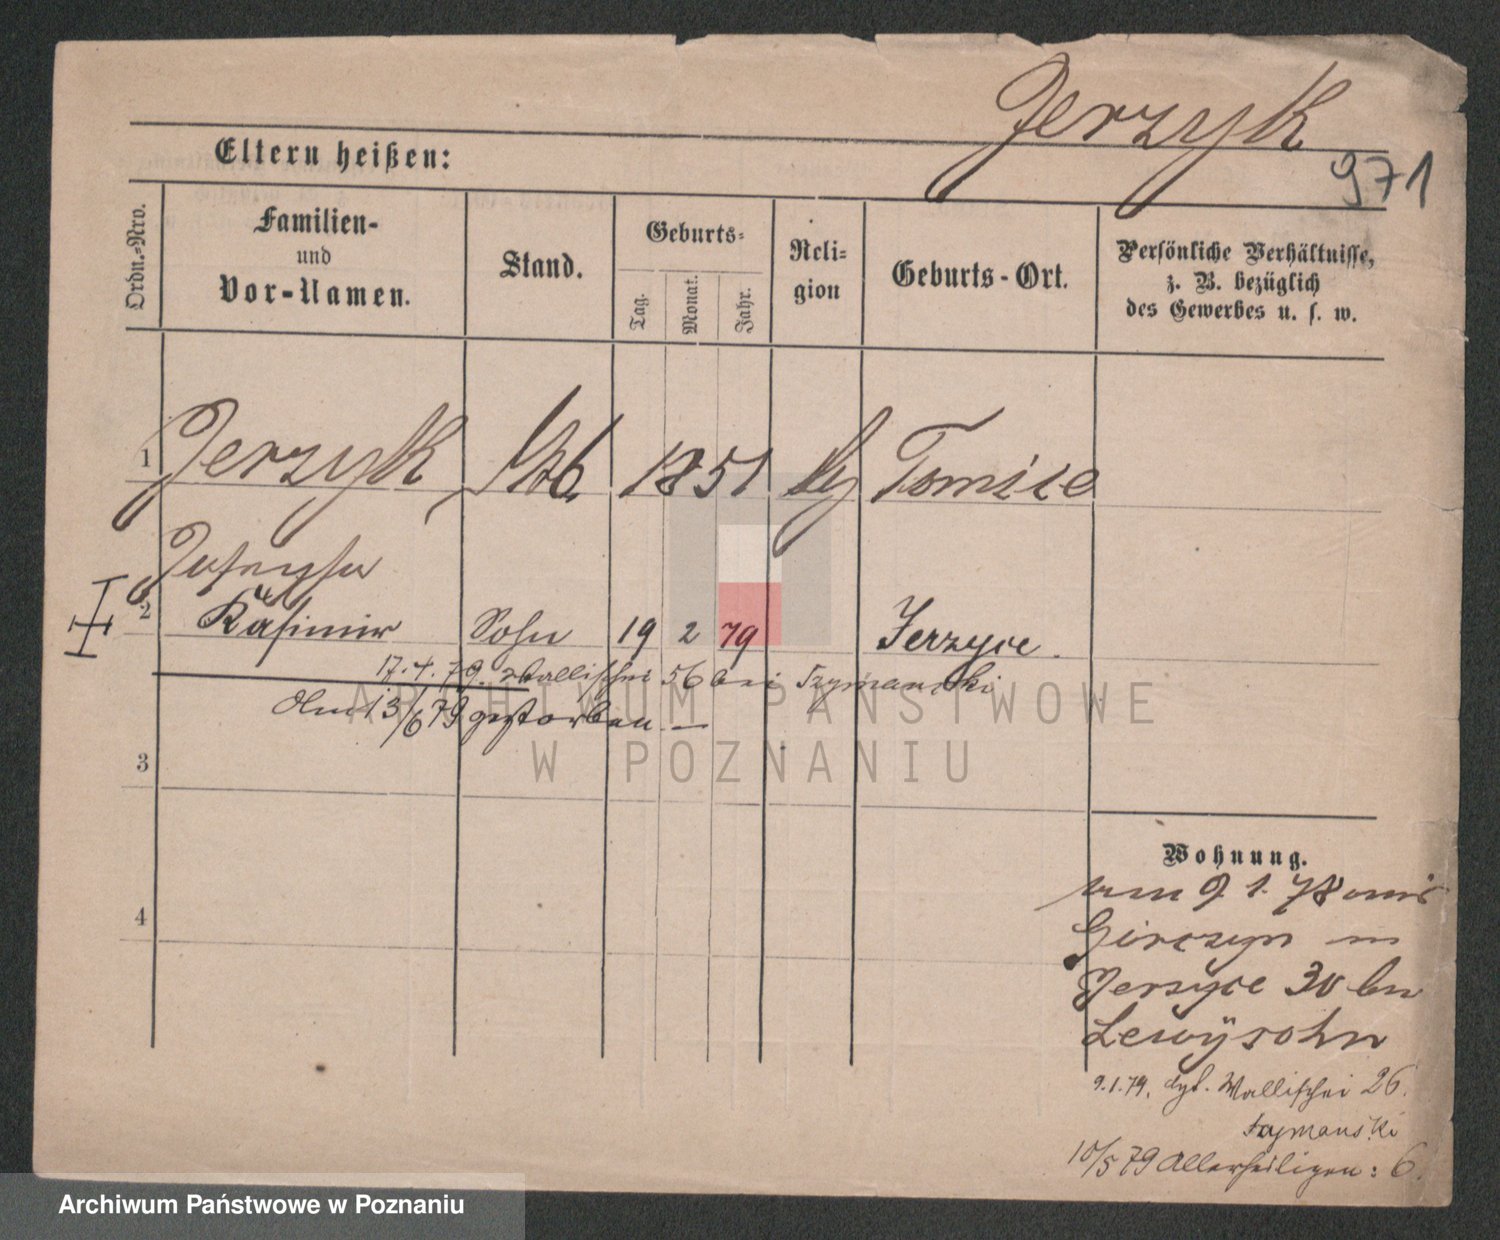 Jerzyk
971
Eltern heißen:
Ordn.-Nro.
Familien-
und
Vor-Namen.
Stand.
Geburts-
Tag.
Monat.
Jahr.
Reli-
gion
Geburts-Ort.
Persönliche Verhältnisse,
z. B. bezüglich
des Gewerbes u. s. w.
1 Jerzyk 1851 Tomice
Josepha
2 Kasimir Sohn 19 2 79 Jerzyce.
17.4.79. Wallischei 56 bei Szymanski
Am 13/6 79 gestorben. —
3
4
Wohnung.
am 9. 1. 78 aus
in
Jersyce 30 bei
Lewÿsohn
9.1.79. Wallischei 26.
Szymanski
10/5 79 Allerheiligen: 6.
ARCHIWUM PAŃSTWOWE
W POZNANIU
Archiwum Państwowe w Poznaniu